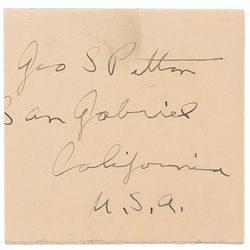 Geo S Patton
San Gabriel
California
U.S.A.